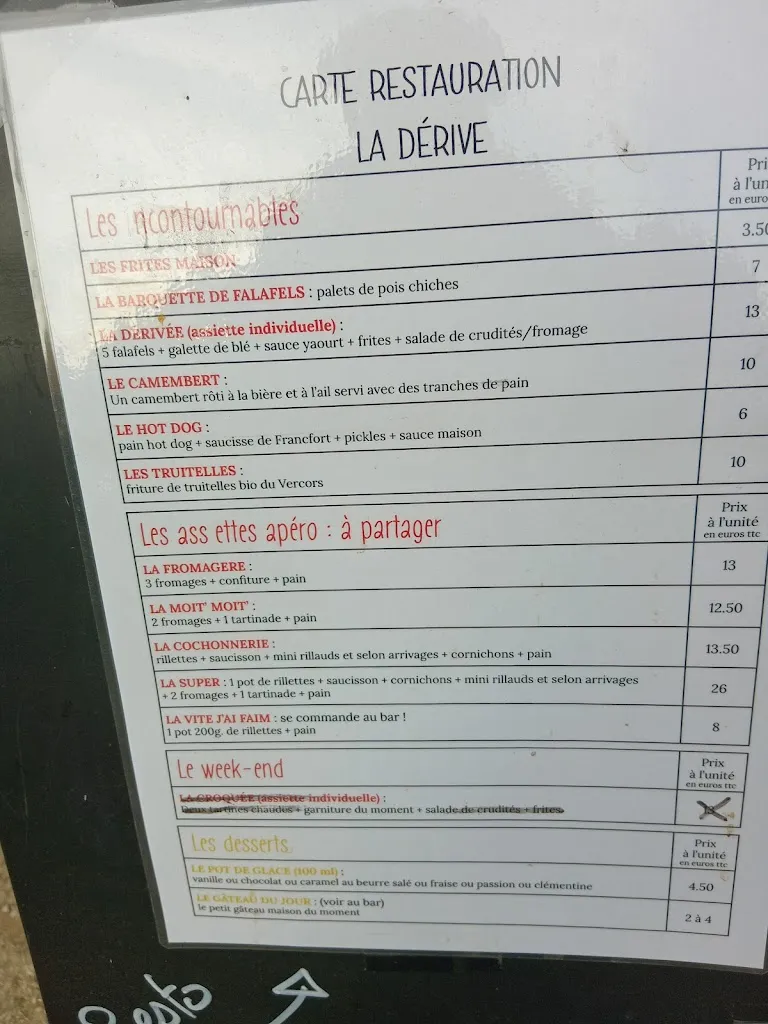 CARTE RESTAURATION
LA DÉRIVE
Les ncontournables
Pri
à l'un
en euro
LES FRITES MAISON
3.50
LA BARQUETTE DE FALAFELS : palets de pois chiches
7
LA DERIVÉE (assiette individuelle) :
5 falafels + galette de blé + sauce yaourt + frites + salade de crudités/fromage
13
LE CAMEMBERT :
Un camembert rôti à la bière et à l'ail servi avec des tranches de pain
10
LE HOT DOG :
pain hot dog + saucisse de Francfort + pickles + sauce maison
6
LES TRUITELLES :
friture de truitelles bio du Vercors
10
Les ass ettes apéro : à partager
Prix
à l'unité
en euros ttc
LA FROMAGERE :
3 fromages + confiture + pain
13
LA MOIT' MOIT' :
2 fromages + 1 tartinade + pain
12.50
LA COCHONNERIE :
rillettes + saucisson + mini rillauds et selon arrivages + cornichons + pain
13.50
LA SUPER : 1 pot de rillettes + saucisson + cornichons + mini rillauds et selon arrivages
+ 2 fromages + 1 tartinade + pain
26
LA VITE J'AI FAIM : se commande au bar !
1 pot 200g. de rillettes + pain
8
Le week-end
Prix
à l'unité
en euros ttc
LA CROQUÉE (assiette individuelle) :
Deux tartines chaudes + garniture du moment + salade de crudités + frites.
Les desserts
Prix
à l'unité
en euros ttc
LE POT DE GLACE (100 ml) :
vanille ou chocolat ou caramel au beurre salé ou fraise ou passion ou clémentine
4.50
LE GÂTEAU DU JOUR : (voir au bar)
le petit gâteau maison du moment
2 à 4
Resto